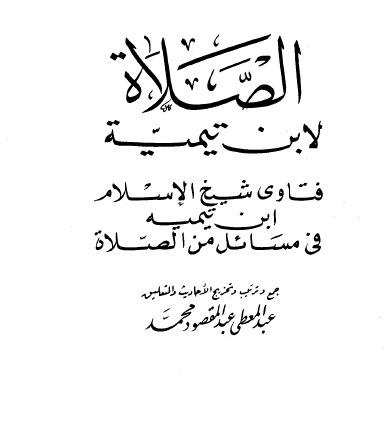 الصَّلَاة
لابن تيميَّة
فتاوى شيخ الإسلام
ابن تيميه
فى مسَائل من الصَّلاة
جمع وترتيب وتخريج الأحاديث والتعليق
عبد المعطى عبد المقصود محمَّد